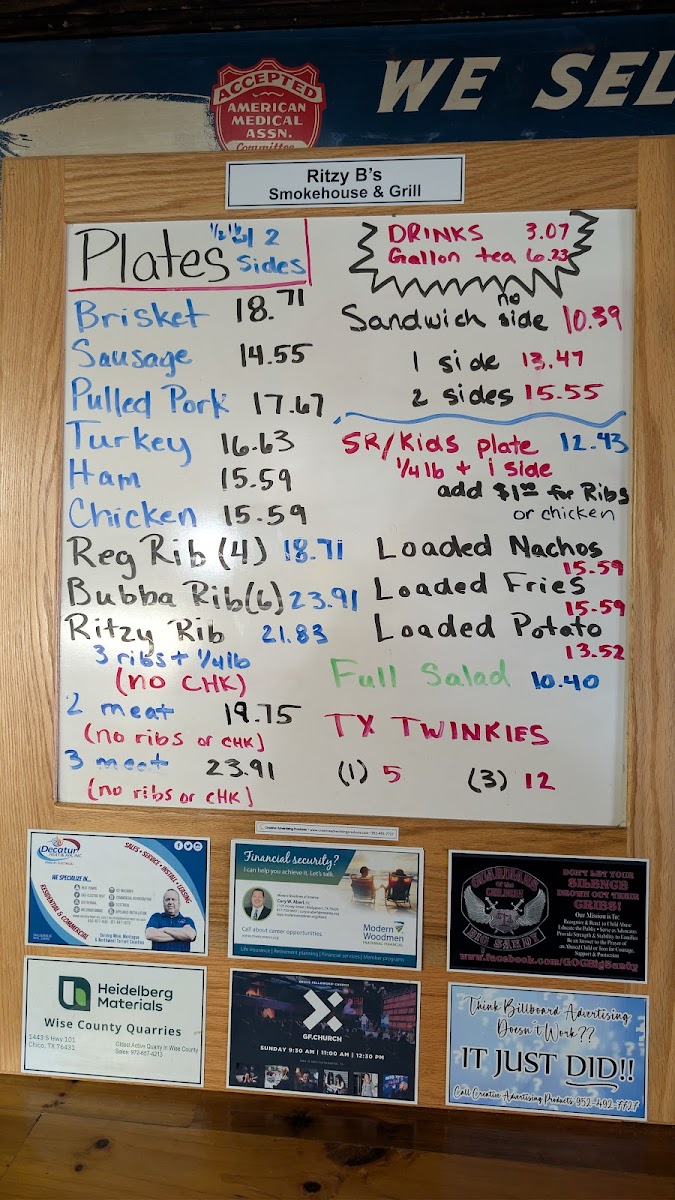 WE SEL
ACCEPTED
AMERICAN
MEDICAL
ASSN.
Committee
Ritzy B's
Smokehouse & Grill
Plates 1/2 lb / 2
Sides
Brisket 18.71
Sausage 14.55
Pulled Pork 17.67
Turkey 16.63
Ham 15.59
Chicken 15.59
Reg Rib (4) 18.71
Bubba Rib (6) 23.91
Ritzy Rib 21.83
3 ribs + 1/4 lb
(no CHK)
2 meat 19.75
(no ribs or CHK)
3 meat 23.91
(no ribs or CHK)
DRINKS 3.07
Gallon tea 6.23
Sandwich no side 10.39
1 side 13.47
2 sides 15.55
SR/Kids plate 12.43
1/4 lb + 1 side
add $1.00 for Ribs
or chicken
Loaded Nachos
15.59
Loaded Fries
15.59
Loaded Potato
13.52
Full Salad 10.40
TX TWINKIES
(1) 5 (3) 12
Decatur
SALES • SERVICE • INSTALL • LEASING
WE SPECIALIZE IN...
RESIDENTIAL & COMMERCIAL
Financial security?
I can help you achieve it. Let's talk.
Call about career opportunities.
Modern
Woodmen
FRATERNAL FINANCIAL
Life insurance | Retirement planning | Financial services | Member programs
GUARDIANS
of the
CHILDREN
BIG SANDY
DON'T LET YOUR
SILENCE
DROWN OUT THEIR
CRIES!
Our Mission is To:
Recognize & React to Child Abuse
Educate the Public • Serve as Advocates
Provide Strength & Stability to Families
Be an Answer to the Prayer of
an Abused Child or Teen for Courage,
Support & Protection
www.facebook.com/GOCBigSandy
Heidelberg
Materials
Wise County Quarries
1443 S Hwy 101
Chico, TX 76431
GF.CHURCH
SUNDAY 9:30 AM | 11:00 AM | 12:30 PM
Think Billboard Advertising
Doesn't Work??
IT JUST DID!!
Call Creative Advertising Products 952-492-7727